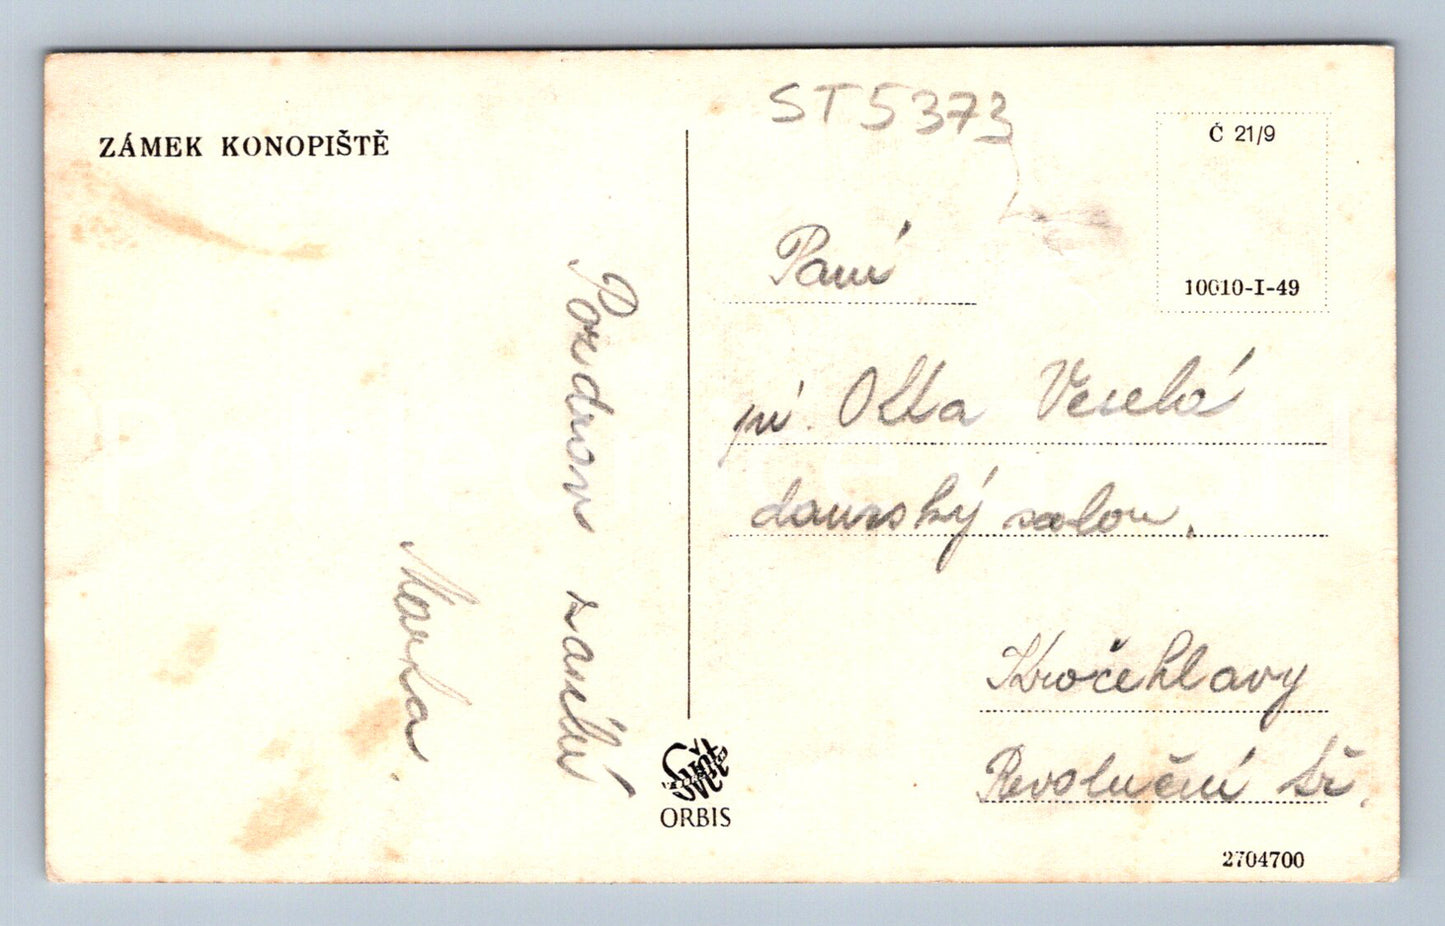 ZÁMEK KONOPIŠTĚ
ST5373
Č 21/9
10010-I-49
Paní
Olla Veselá
dámský salon.
Kročehlavy
Revoluční tř.
Pozdrav zasílá
Marla
ORBIS
2704700